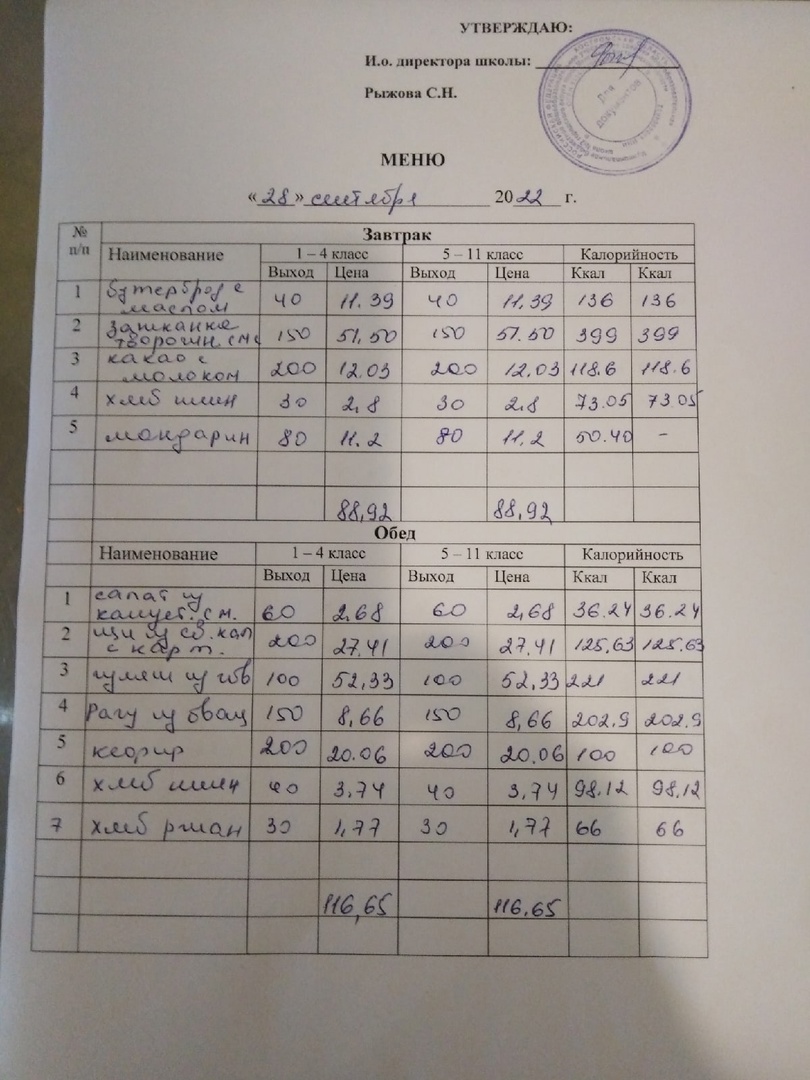 УТВЕРЖДАЮ:
И.о. директора школы:
Рыжова С.Н.
для
документов
МЕНЮ
« 28 » сентября 20 22 г.
№ п/п Завтрак
Наименование 1 – 4 класс 5 – 11 класс Калорийность
Выход Цена Выход Цена Ккал Ккал
1 бутерброд с
маслом 40 11.39 40 11.39 136 136
2 запеканка
творожн см 150 51,50 150 51.50 399 399
3 какао с
молоком 200 12.03 200 12.03 118.6 118.6
4 хлеб пшен 30 2,8 30 2,8 73.05 73.05
5 мандарин 80 11.2 80 11.2 50.40 -
88,92 88,92
Обед
Наименование 1 – 4 класс 5 – 11 класс Калорийность
Выход Цена Выход Цена Ккал Ккал
1 салат из
капуст. см. 60 2,68 60 2,68 36.24 36.24
2 щи из св. кап
с карт. 200 27,41 200 27,41 125,63 125.63
3 гуляш из гов 100 52,33 100 52,33 221 221
4 Рагу из овощ 150 8,66 150 8,66 202.9 202.9
5 кефир 200 20.06 200 20.06 100 100
6 хлеб пшен 40 3,74 40 3,74 98.12 98,12
7 хлеб ржан 30 1,77 30 1,77 66 66
116,65 116.65